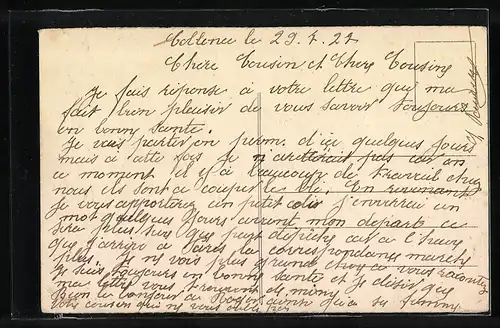 Collence le 29. 7. 27
Chere Cousin et Chere Cousine
Je fais réponse à votre lettre que ma
fait bien plaisir de vous savoir toujours
en bonne santé.
Je vais partir en perm. d'ici quelques jours
mais a cette fois je n'arreterait pas car en
ce moment il y a beaucoup de travail chez
nous ils sont a couper le blé. En revenant
je vous apporterez un petit colis j'envairrai un
mot quelques jours avant mon départ ce
sera plus sur que par dépêche car a l'heure
que j'arrive à la correspondance marche
plus. Je ne vois plus grand chose a vous raconter
Je suis toujours en bonne santé et je désire que
ma lettre vous trouvent de même
votre cousin qui ne vous oublie pas